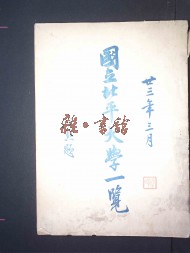 廿三年三月
國立北平大學一覽